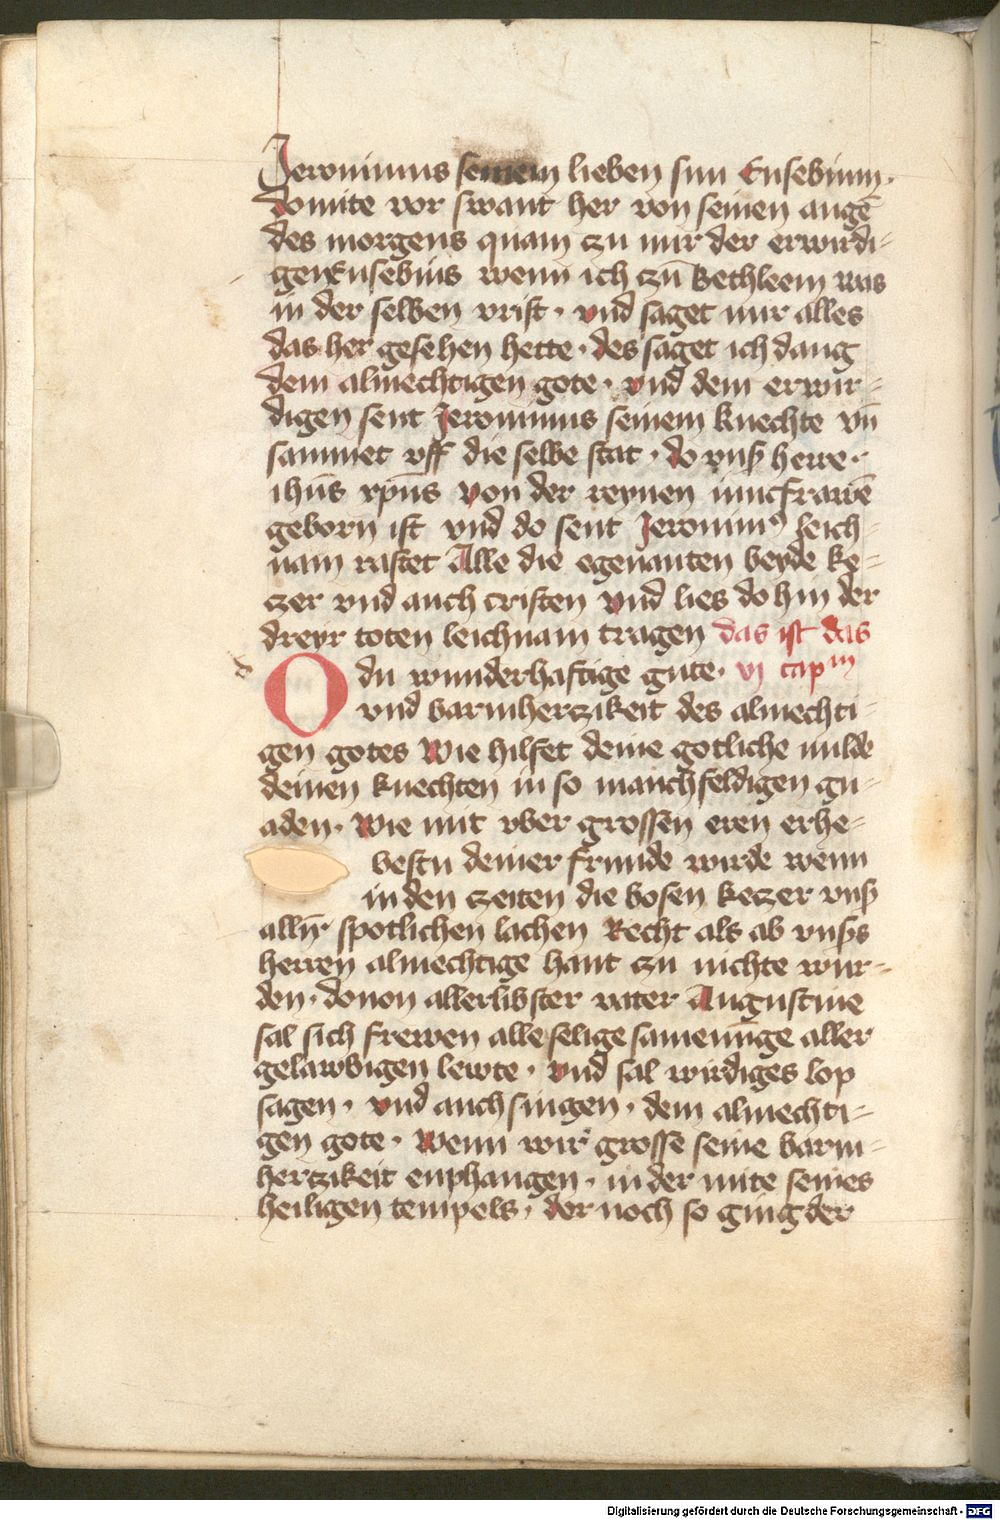 Jeronimus seinem lieben sun Eusebium.
domite vor swant her von seinen augē
des morgens quam zu mir der erwirdi-
gen Eusebius wenn ich zū Bethleem was
in der selben vrist · vnd saget mir alles
das her gesehen hette · des saget ich dang
dem almechtigen gote · vnd dem erwir-
digen sent Jeronimus seinem knechte vn̄
sammet vff die selbe stat · do vnsz herre ·
ihūs xpūs von der reynen iuncfrawē
geborn ist vnd do sent Jeronimꝰ leich-
nam rastet Alle die egenanten beyde ke-
zer vnd auch cristen vnd lies do hin der
dreyr toten leichnam tragen das ist das
O du wunderhaftige gute · vj capᵐ
vnd barmherzikeit des almechti-
gen gotes Wie hilfet deine gotliche milde
deinen knechten in so manchfeldigen gn-
aden · Wie mit vber grossen eren erhe-
bestu deiner frunde wirde wenn
in den zeiten die bosen kezer vnsz
allir spotlichen lachen Recht als ab vnszs
herren almechtige hant zu nichte wur-
den · douon allerlibster vater Augustine
sal sich frewen alle selige samenūge aller
gelawbigen lewte · vnd sal wirdiges lop
sagen · vnd auch singen · dem almechti-
gen gote · Wenn wir grosse seine barm-
herzikeit enphangen · in der mite seines
heiligen tempels · dor noch so ging der
Digitalisierung gefördert durch die Deutsche Forschungsgemeinschaft - DFG